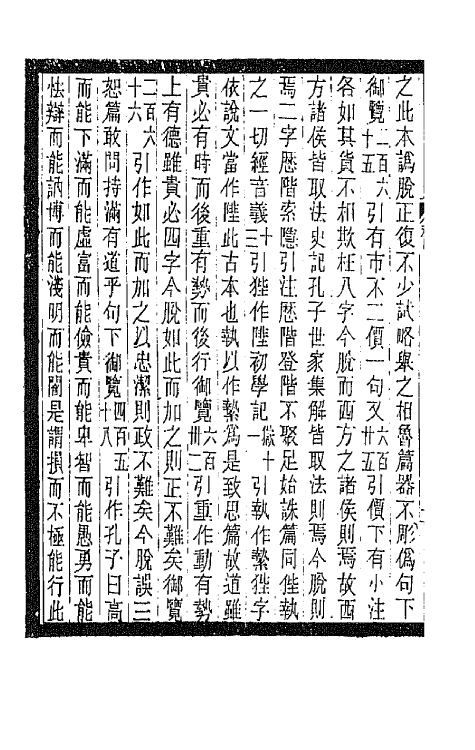 之此本譌脫正復不少試略舉之相魯篇器不彫僞句下
御覽二百六十五引有市不二價一句又六百卅五引價下有小注
各如其貨不相欺枉八字今脫而西方之諸侯則焉故西
方諸侯皆取法史記孔子世家集解皆取法則焉今脫則
焉二字歷階索隱引注歷階登階不聚足始誅篇同俚執
之一切經音義十三引狴作陛初學記十一引執作縶狴字
依說文當作陛此古本也執以作縶爲是致思篇故道雖
貴必有時而後重有勢而後行御覽六百卅二引重作動有勢
上有德雖貴必四字今脫如此而加之則正不難矣御覽
二百六十六引作如此而加之以忠潔則政不難矣今脫誤三
恕篇敢問持滿有道乎句下御覽四百五十八引作孔子曰高
而能下滿而能虛富而能儉貴而能卑智而能愚勇而能
怯辯而能訥博而能淺明而能闇是謂損而不極能行此